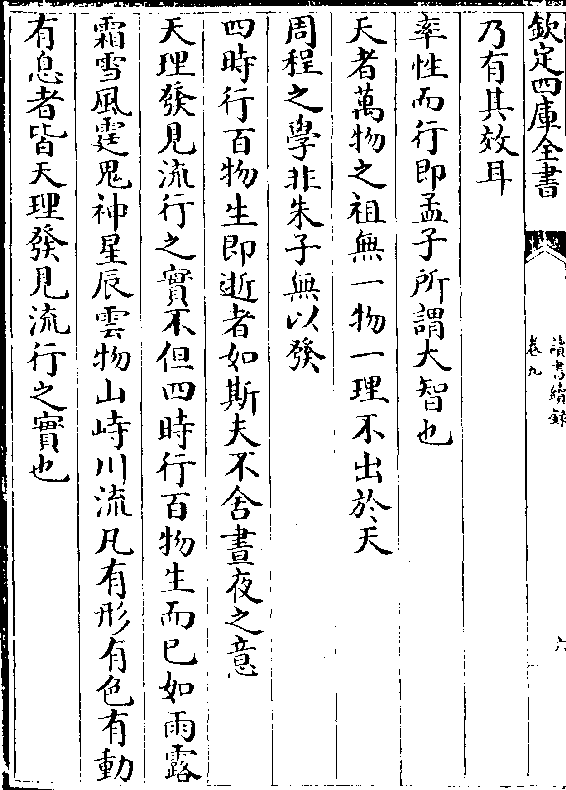 欽定四庫全書
讀書續錄
卷九
六
乃有其效耳
率性而行即孟子所謂大智也
天者萬物之祖無一物一理不出於天
周程之學非朱子無以發
四時行百物生即逝者如斯夫不舍晝夜之意
天理發見流行之實不但四時行百物生而已如雨露
霜雪風霆鬼神星辰雲物山峙川流凡有形有色有動
有息者皆天理發見流行之實也